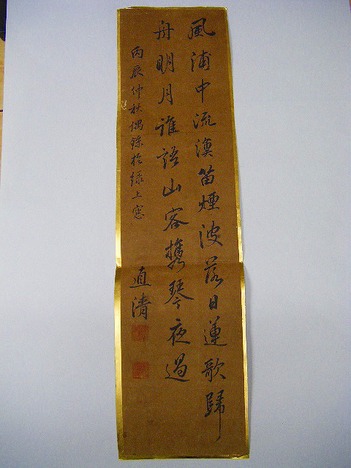 風浦中流漁笛煙波落日蓮歌歸
舟明月誰語山客携琴夜過
丙辰仲秋偶錄於綠上窓
直清